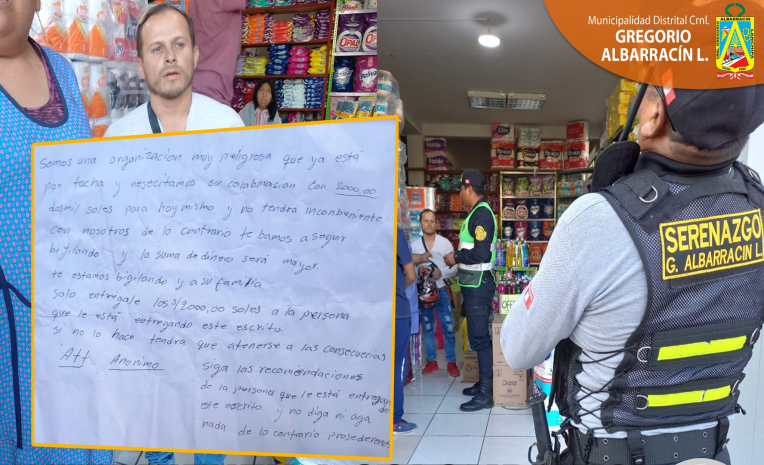 Municipalidad Distrital Crnl.
GREGORIO
ALBARRACÍN L.
ALBARRACÍN
Somos una organización muy peligrosa que ya está
por tacha y nesecitamos su colaboración con 2000.00
dosmil soles para hoy mismo y no tendra inconbeniente
con nosotros de lo contrario te bamos a seguir
bigilando y la suma de dinero será mayor.
te estamos bigilando y a su familia
solo entregale los S/2000,00 soles a la persona
que le está entregando este escrito.
si no lo hace tendra que atenerse a las consecuecias
Att Anonimo
siga las recomendaciones
de la persona que le está entregando
este escrito y no diga ni aga
nada de lo contrario
SERENAZGO
G. ALBARRACIN L.
OPAL